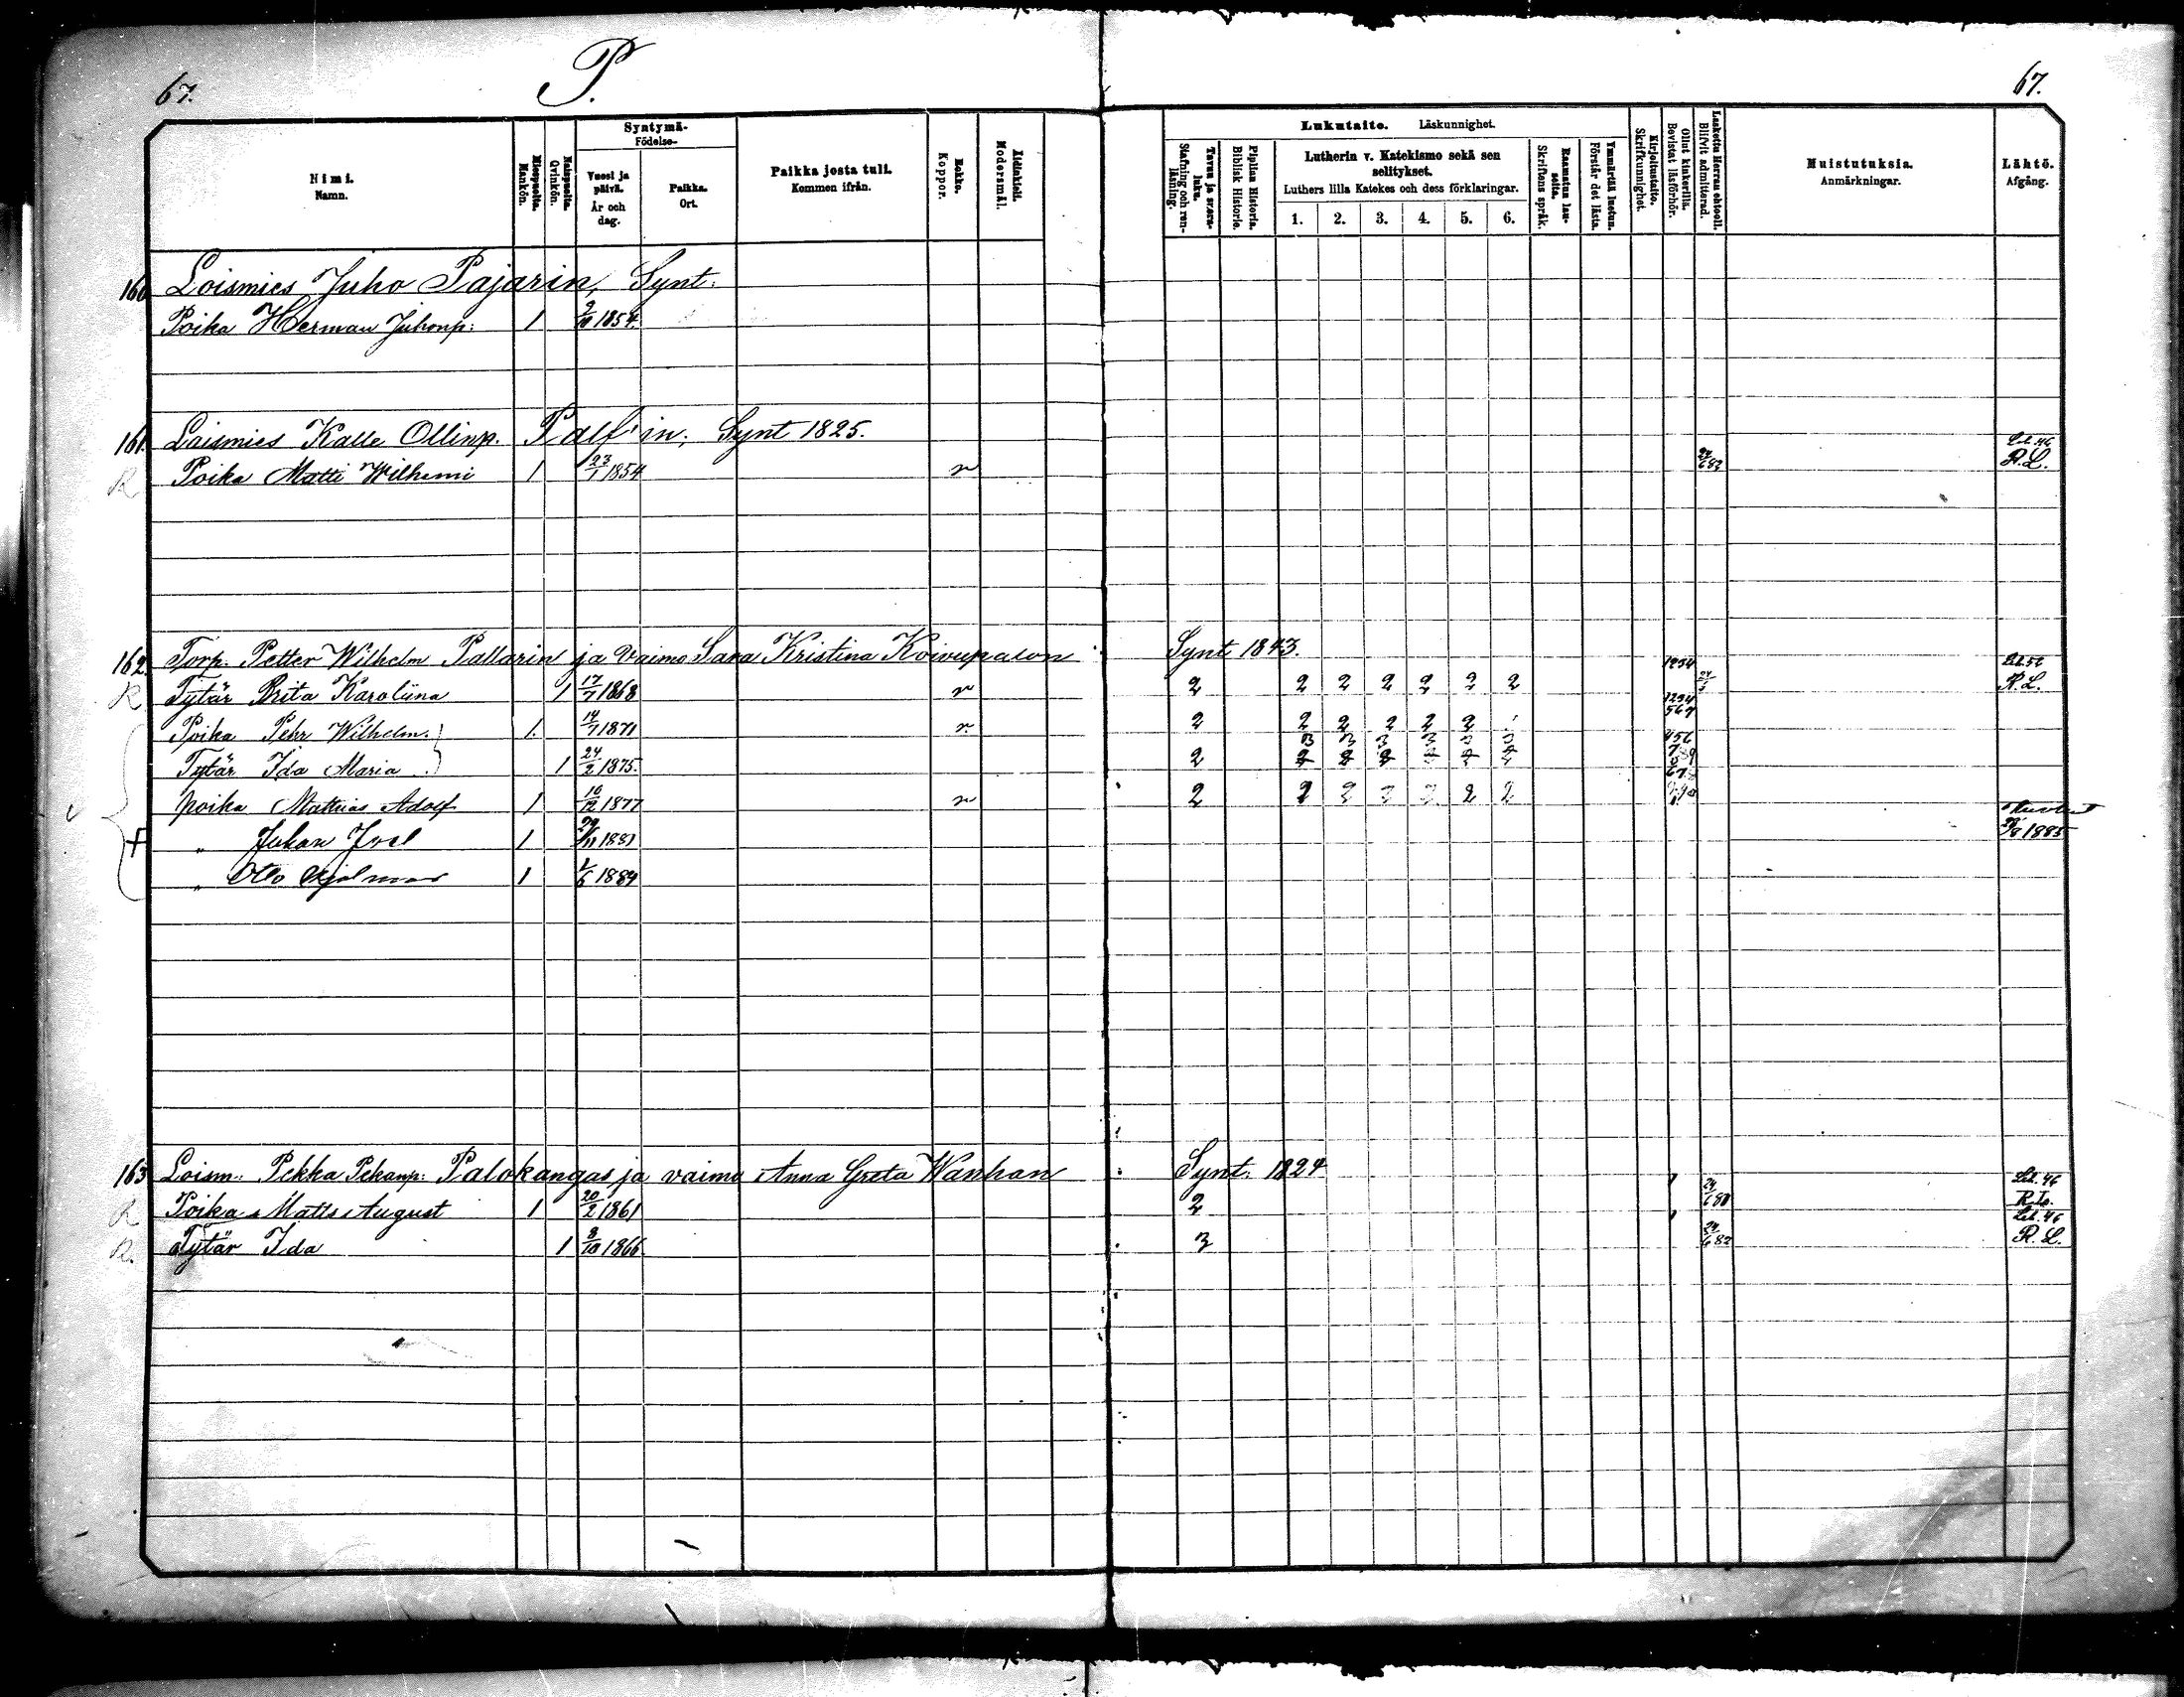 67.
P.
67.
Nimi.
Namn.
Miespuolta.
Mankön.
Naispuolta.
Qvinkön.
Syntymä-
Födelse-
Vuosi ja
päivä.
År och
dag.
Paikka.
Ort.
Paikka josta tuli.
Kommen ifrån.
Rokko.
Koppor.
Äidinkieli.
Modersmål.
Lukutaito. Läskunnighet.
Tavuu ja sisru-
luku.
Stafning och ren-
läsning.
Piplian Historia.
Biblisk Historie.
Lutherin v. Katekismo sekä sen
selitykset.
Luthers lilla Katekes och dess förklaringar.
1. 2. 3. 4. 5. 6.
Raamatun lau-
seita.
Skriftens språk.
Ymmärtää luetun.
Förstår det lästa.
Kirjoitustaito.
Skrifkunnighet.
Ollut kinkerillä.
Bevistat läsförhör.
Laskettu Herran ehtooll.
Blifvit admitterad.
Muistutuksia.
Anmärkningar.
Lähtö.
Afgång.
160 Loismies Juho Pajarin, Synt.
Poika Herman Juhonp. 1 9/10 1854.
161. Loismies Kalle Ollinp. Palf in, Synt 1825. Lel. 46
R Poika Matti Wilhemi 1 23/1 1854 r 24/6 82 R.L.
162. Torp. Petter Wilhelm Pallarin ja Vaimo Sara Kristina Koivupalon Synt 1843. 1234
R Tytär Brita Karoliina 1 17/7 1868 r 2 2 2 2 2 2 2 R.L.
1234
567
Poika Pehr Wilhelm. 1. 14/7 1871 r 2 2 2 2 2 2
3 3 3 3 3 3 456
Tytär Ida Maria 1 24/2 1875. 2 2 2 2
678
poika Mathias Adolf 1 16/12 1877 r 2 2 2 2 2 2 2
+ " Juhan 1 29/11 1881 1885
" Otto Hjalmar 1 1/6 1884
163 Loism. Pekka Pekanp. Palokangas ja vaimo Anna Greta Wanhan Synt. 1824 Lel. 46
R Poika Matts August 1 20/2 1861 2 24/6 80 R.L.
Lel. 46
R. Tytär Ida 1 8/10 1866. 3 24/6 82 R.L.